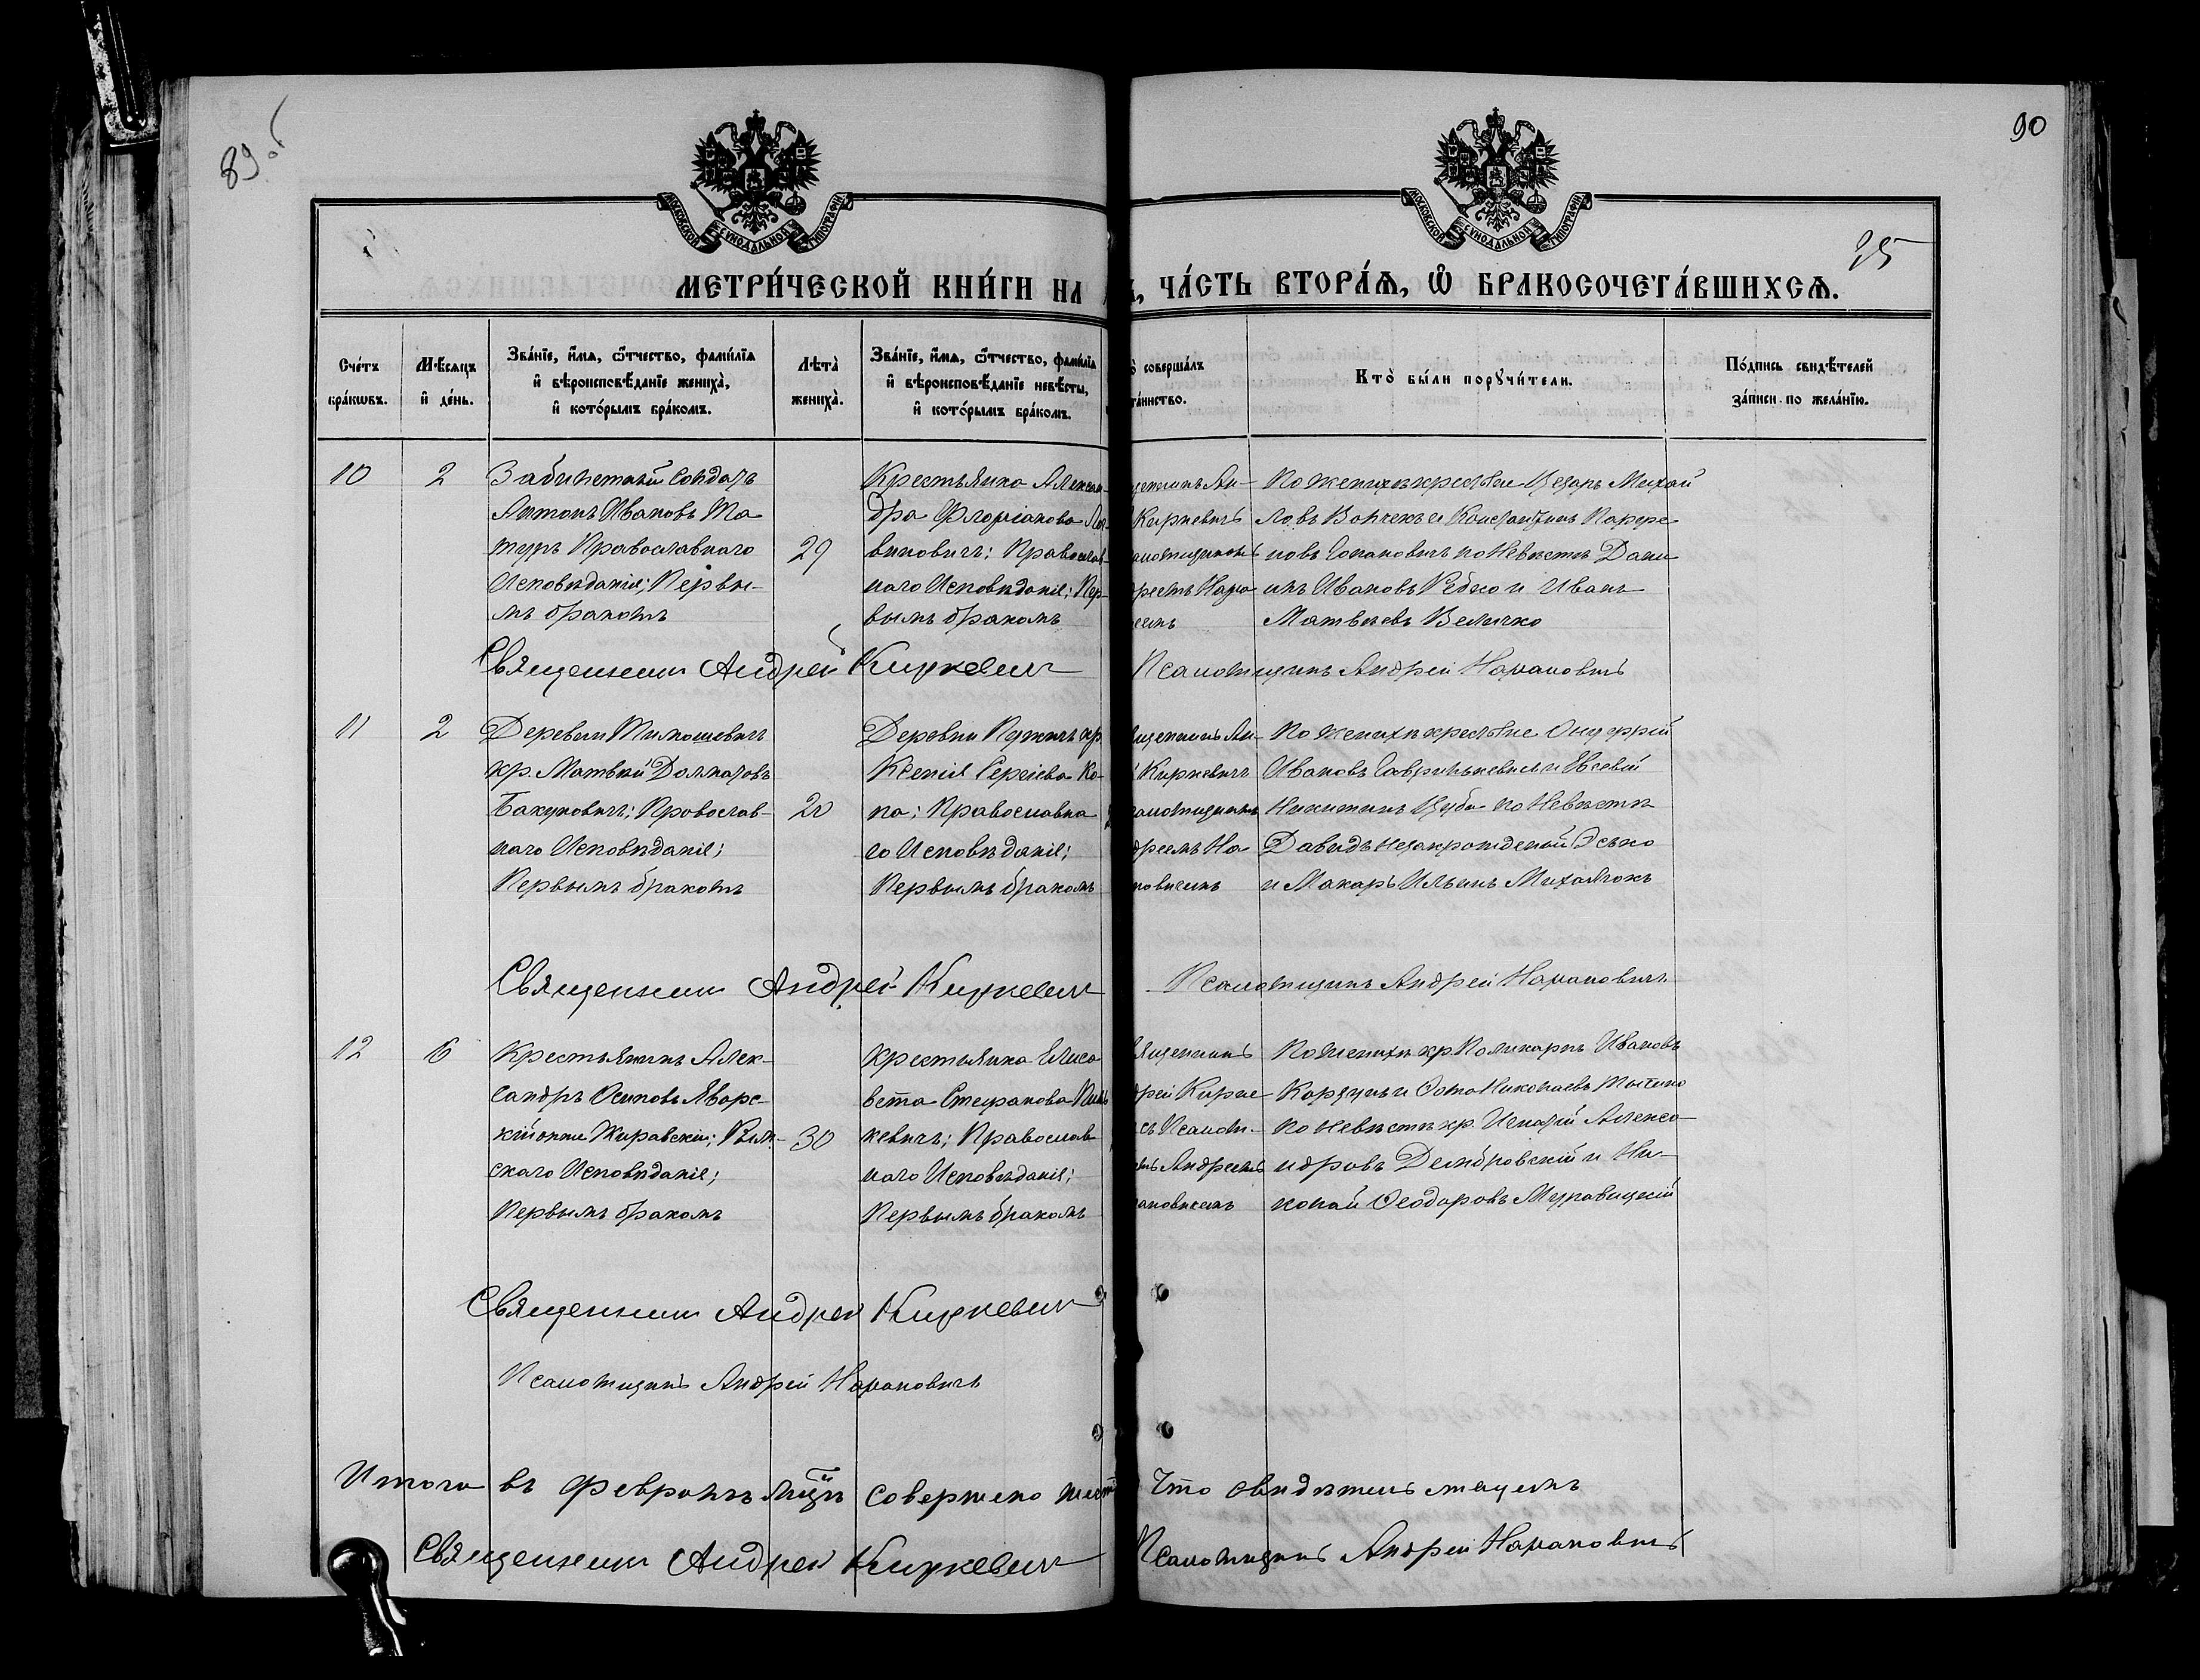 89 об
90
МОСКОВСКОЙ СѴНОДАЛЬНОЙ ТИПОГРАФІИ
МОСКОВСКОЙ СѴНОДАЛЬНОЙ ТИПОГРАФІИ
95
МЕТРИ́ЧЕСКОЙ КНИ́ГИ НА
, ЧА́СТЬ ВТОРА́Ѧ, Ѽ БРАКОСОЧЕТА́ВШИХСѦ.
Сче́тъ бра́кѡвъ.
Мѣ́сяцъ и҆ де́нь.
Зва́нїе, и҆́мѧ, ѻ҆́тчество, фами́лїѧ и҆ вѣроисповѣ́данїе жениха̀, и҆ кото́рымъ бра́комъ.
Лѣта̀ жениха̀.
Зва́нїе, и҆́мѧ, ѻ҆́тчество, фами́лїѧ и҆ вѣроисповѣ́данїе невѣ́сты, и҆ кото́рымъ бра́комъ.
соверша́лъ
та́инство.
Кто̀ бы́ли порꙋчи́тели.
По́дпись свидѣ́телей за́писи по жела́нїю.
10
2
Забилетный Солдатъ
Антонъ Ивановъ Ма
туръ Православнаго
Исповѣданія; Первы-
мъ бракомъ
29
Крестьянка Алексан-
дра Флоріанова
виковичъ; Православ-
наго Исповѣданія; Пер-
вымъ бракомъ
щенникъ Ан-
Киркевичъ
аломщикомъ
дреемъ Нара
По женихѣ крестьяне Цезарь Михай
ловъ и Константинъ
новъ по Невѣстѣ Дани
илъ Ивановъ Редко и Иванъ
Матвѣевъ Величко
Священникъ Андрей Киркевич
Псаломщикъ Андрей Нарановичъ
11
2
Деревни Тимошевичъ
кр. Матвѣй Долматовъ
Бакуновичъ; Православ-
наго Исповѣданія;
Первымъ бракомъ
20
Деревни кр.
Ксенія Сергіева Ко-
па; Православна
го Исповѣданія;
Первымъ бракомъ
щенникъ Ан-
Киркевичъ
саломщикомъ
дреемъ На
новичемъ
По женихѣ крестьяне Онуфрій
Ивановъ Гаврилькевичъ и Евсевій
Никитинъ Цуба по Невѣстѣ
Давидъ Незакрожденый Эсько
и Макаръ Ильинъ Михальчокъ
Священникъ Андрей Киркевич
Псаломщикъ Андрей Нарановичъ
12
16
Крестьянинъ Алек-
сандръ Осиповъ Яворс-
кій онже Жиравскій; Рим-
скаго Исповѣданія;
Первымъ бракомъ
30
Крестьянка Елиса
вета Стефанова
кевичъ; Православ
наго Исповѣданія;
Первымъ бракомъ
вященникъ
дрей Кирке
съ Псалом-
мъ Андреемъ
ановичемъ
По женихѣ кр. Поликарпъ Ивановъ
и Фома Николаевъ
по невѣстѣ кр. Игнатій Алекса-
ндровъ Дембровскій и Ни-
колай Ѳеодоровъ Муравицкій
Священникъ Андрей Киркевич
Псаломщикъ Андрей Нарановичъ
Итого въ Февралѣ мцѣ совершено шесть
Что свидѣтельствуемъ
Священникъ Андрей Киркевич
Псаломщикъ Андрей Нарановичъ